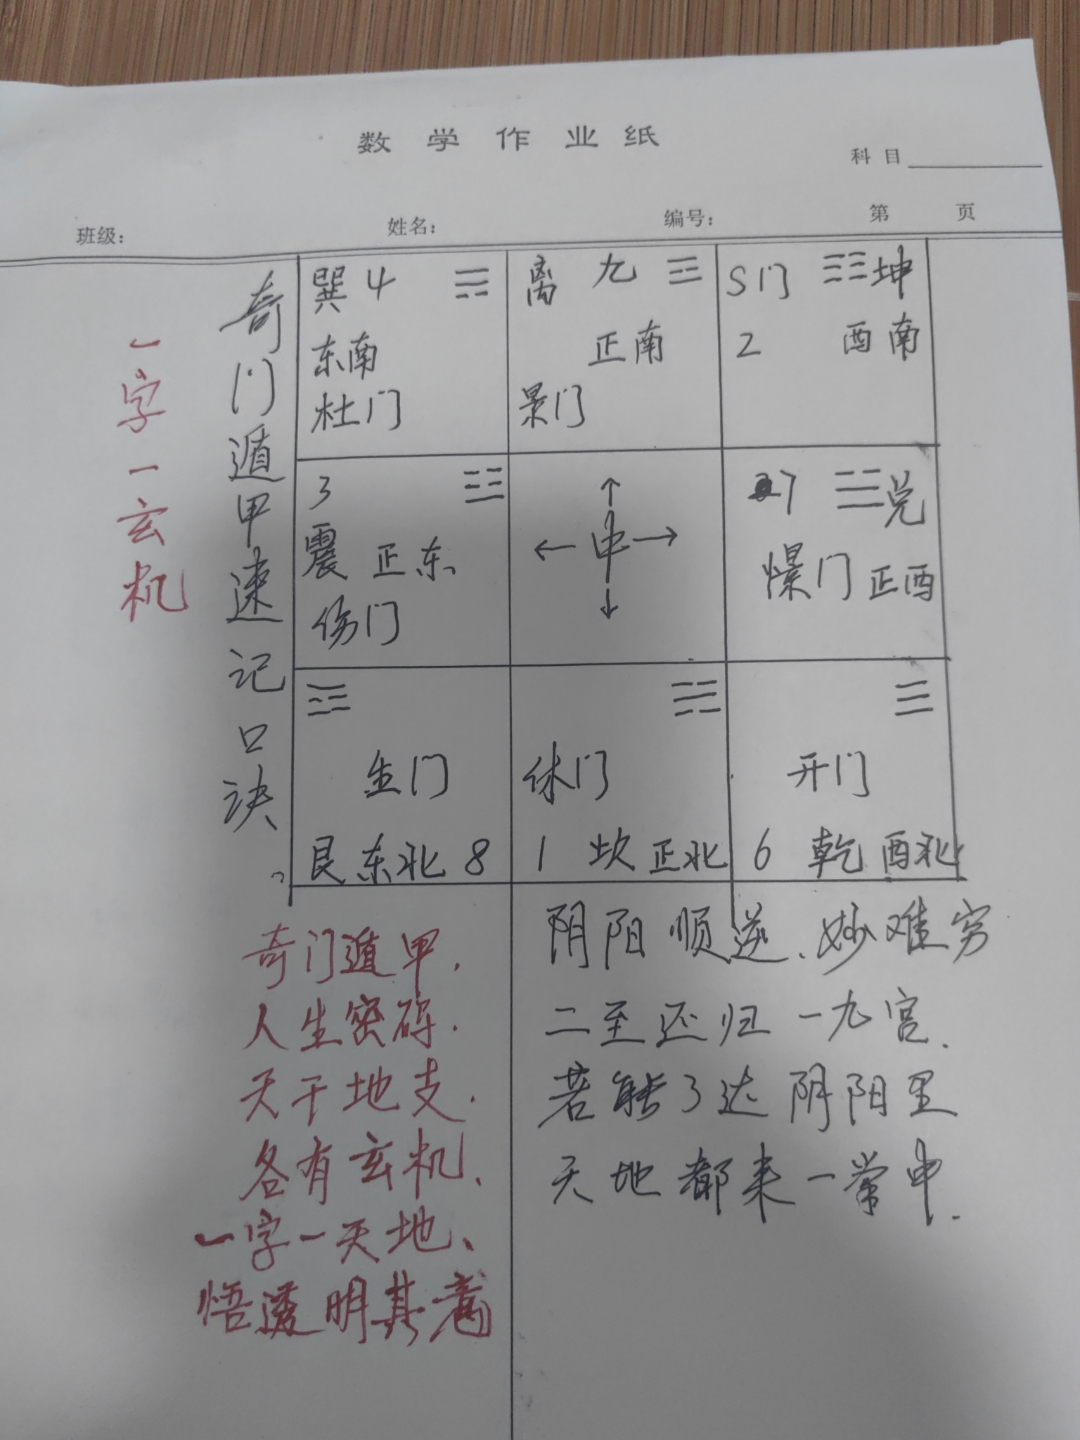 数学作业纸
科目
班级： 姓名： 编号： 第 页
一字一玄机
奇门遁甲速记口诀。
巽 4 ☴
东南
杜门
离 九 ☲
正南
景门
S门 ☷ 坤
2 西南
3 ☳
震 正东
伤门
↑
← 中 →
↓
7 ☱ 兑
惊门 正西
☶
生门
艮东北 8
☵
休门
1 坎 正北
☰
开门
6 乾 西北
奇门遁甲.
人生密码.
天干地支.
各有玄机.
一字一天地、
悟透明其意
阴阳顺逆、妙难穷
二至还归一九宫.
若能了达阴阳里
天地都来一掌中.